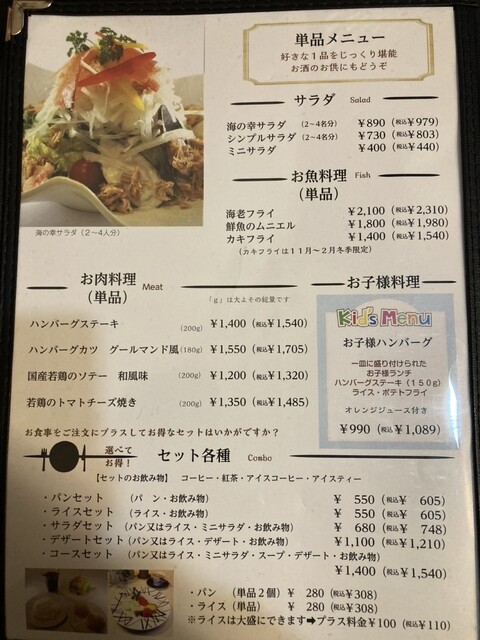 単品メニュー
好きな1品をじっくり堪能
お酒のお供にもどうぞ
サラダ Salad
海の幸サラダ (2~4名分) ¥890 (税込¥979)
シンプルサラダ (2~4名分) ¥730 (税込¥803)
ミニサラダ ¥400 (税込¥440)
海の幸サラダ(2~4人分)
お魚料理 Fish
(単品)
海老フライ ¥2,100 (税込¥2,310)
鮮魚のムニエル ¥1,800 (税込¥1,980)
カキフライ ¥1,400 (税込¥1,540)
(カキフライは11月~2月冬季限定)
お肉料理 Meat
(単品)
「g」は大よその総量です
ハンバーグステーキ (200g) ¥1,400 (税込¥1,540)
ハンバーグカツ グールマンド風 (180g) ¥1,550 (税込¥1,705)
国産若鶏のソテー 和風味 (200g) ¥1,200 (税込¥1,320)
若鶏のトマトチーズ焼き (200g) ¥1,350 (税込¥1,485)
お子様料理
Kid's Menu
お子様ハンバーグ
一皿に盛り付けられた
お子様ランチ
ハンバーグステーキ(150g)
ライス・ポテトフライ
オレンジジュース付き
¥990 (税込¥1,089)
お食事をご注文にプラスしてお得なセットはいかがですか?
選べて
お得!
セット各種 Combo
【セットのお飲み物】 コーヒー・紅茶・アイスコーヒー・アイスティー
・パンセット (パン・お飲み物) ¥ 550 (税込¥ 605)
・ライスセット (ライス・お飲み物) ¥ 550 (税込¥ 605)
・サラダセット (パン又はライス・ミニサラダ・お飲み物) ¥ 680 (税込¥ 748)
・デザートセット(パン又はライス・デザート・お飲み物) ¥1,100 (税込¥1,210)
・コースセット (パン又はライス・ミニサラダ・スープ・デザート・お飲み物)
¥1,400 (税込¥1,540)
・パン (単品2個) ¥ 280 (税込¥308)
・ライス(単品) ¥ 280 (税込¥308)
※ライスは大盛にできます➡プラス料金¥100 (税込¥110)